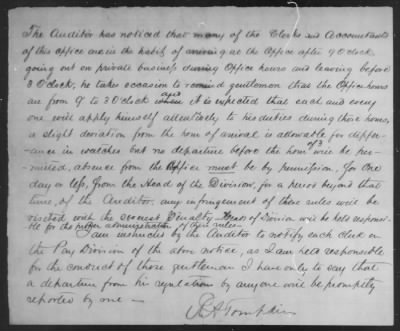 The Auditor has noticed that many of the Clerks and Accountants
of this office are in the habit of arriving at the Office after 9 O'clock,
going out on private business during Office hours and leaving before
3 O'clock, he takes occasion to remind gentlemen that the Office hours
are from 9 to 3 O'clock and when it is expected that each and every
one will apply himself attentively to his duties during those hours,
a slight deviation from the hour of arrival is allowable for differ-
ance in watches but no departure before the hour of 3 will be per-
mitted, absence from the Office must be by permission, for One
day or less, from the Head of the Division, for a period beyond that
time, of the Auditor. any infringement of these rules will be
visited with the severest Penalty. Heads of Division will be held responsi-
ble for the proper administration of these rules.
I am instructed by the Auditor to notify each clerk in
the Pay Division of the above notice, as I am held responsible
for the conduct of those gentlemen I have only to say that
a departure from his regulation by anyone will be promptly
reported by me —
Tompkins